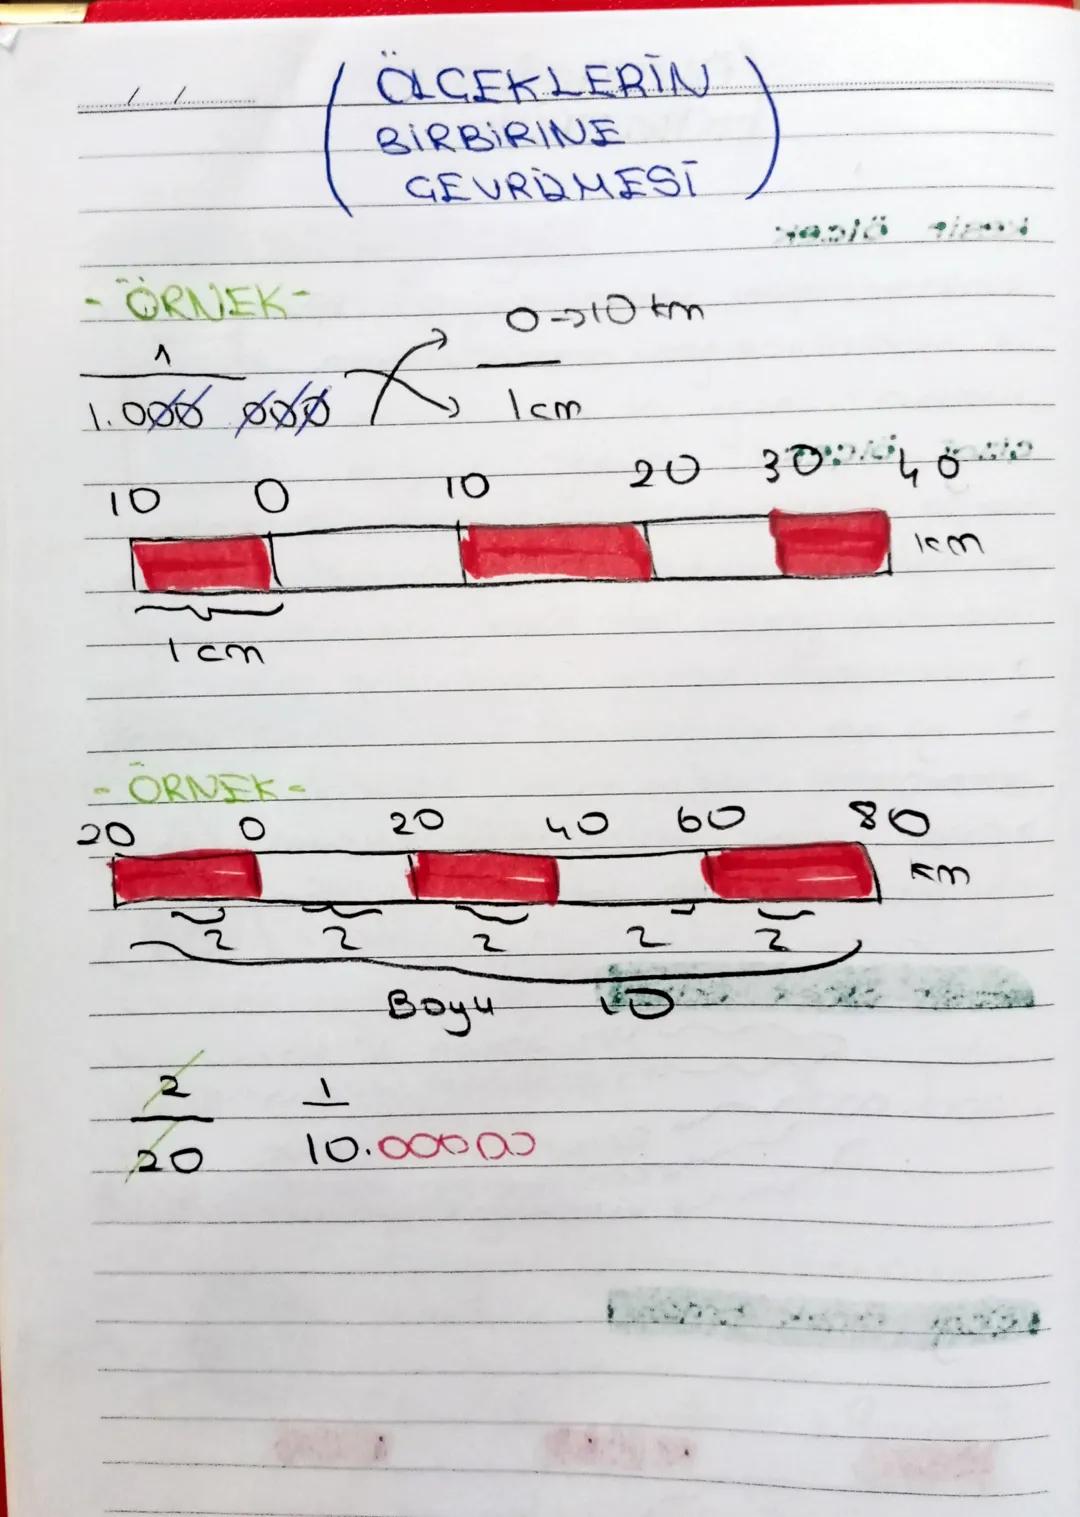 ÖLÇEKLERİN
BİRBİRİNE
ÇEVRİLMESİ
- ÖRNEK -
1
1.000 000
0->10 km
1 cm
10 0 10 20 30 40
km
1 cm
- ÖRNEK -
20 0 20 40 60 80
km
2 2 2 2 2
Boyu 10
2 1
20 10.00000